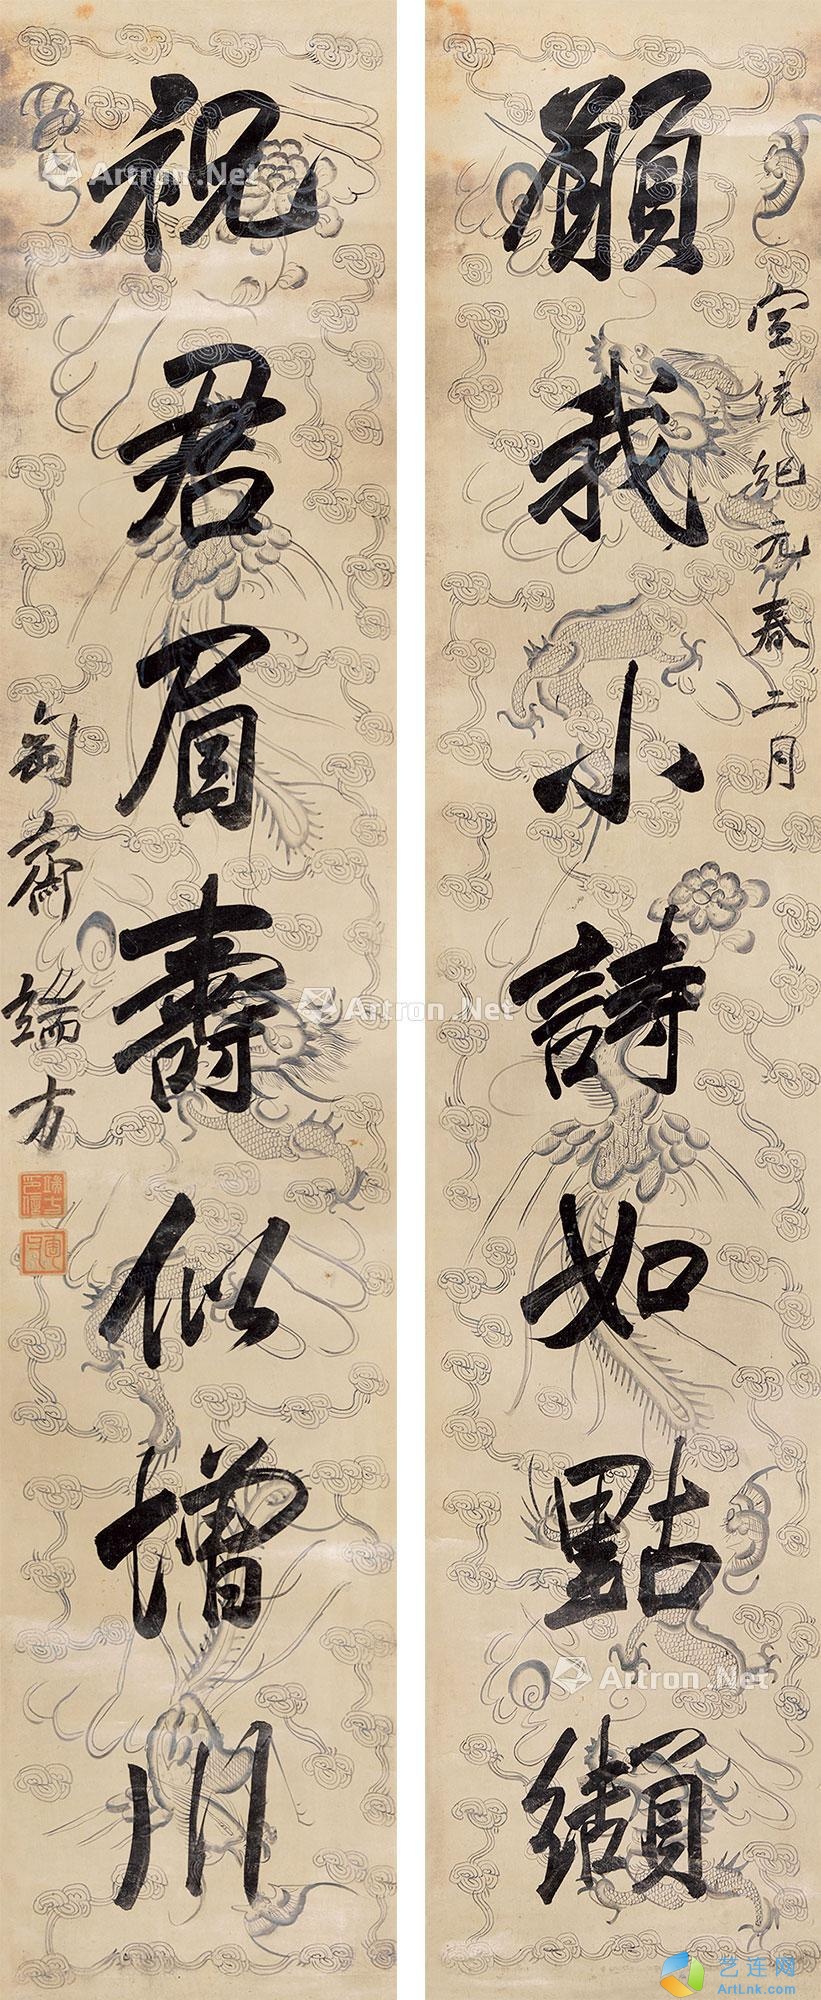 宣統紀元春二月
顧我小詩如點纈
祝君眉壽似增川
匋齋端方
Artron.Net
Artron.Net
Artron.Net
艺连网
ArtLnk.com